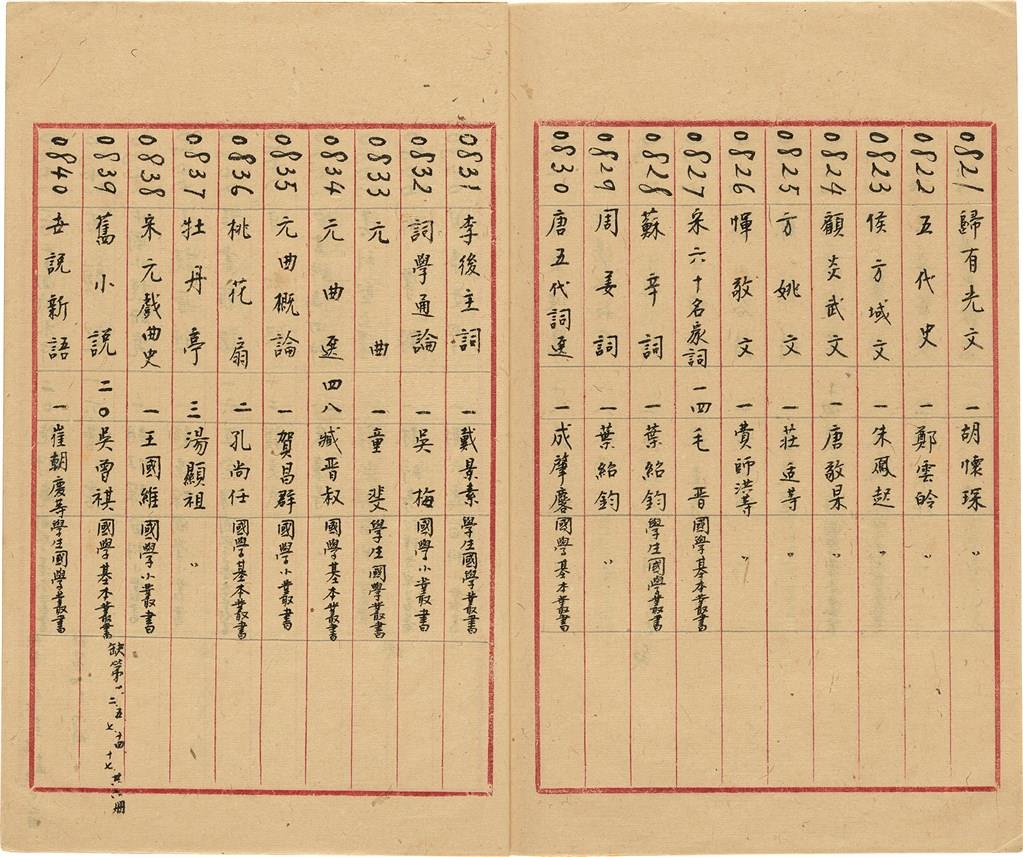 0821 歸有光文 一 胡懷琛 〃
0822 五代史 一 鄭雲齡 〃
0823 侯方域文 一 朱鳳起 〃
0824 顧炎武文 一 唐敬杲 〃
0825 方姚文 一 莊适等 〃
0826 惲敬文 一 費師洪等 〃
0827 宋六十名家詞 一四 毛晋 國學基本叢書
0828 蘇辛詞 一 葉紹鈞 學生國學叢書
0829 周姜詞 一 葉紹鈞 〃
0830 唐五代詞選 一 成肇麐 國學基本叢書
0831 李後主詞 一 戴景素 學生國學叢書
0832 詞學通論 一 吳梅 國學小叢書
0833 元曲 一 童斐 學生國學叢書
0834 元曲選 四八 臧晋叔 國學基本叢書
0835 元曲概論 一 賀昌群 國學小叢書
0836 桃花扇 二 孔尚任 國學基本叢書
0837 牡丹亭 三 湯顯祖 〃
0838 宋元戲曲史 一 王國維 國學小叢書
0839 舊小說 二〇 吳曾祺 國學基本叢書 缺第一、二、五、七、十四、十七、共六册
0840 世說新語 一 崔朝慶等 學生國學叢書